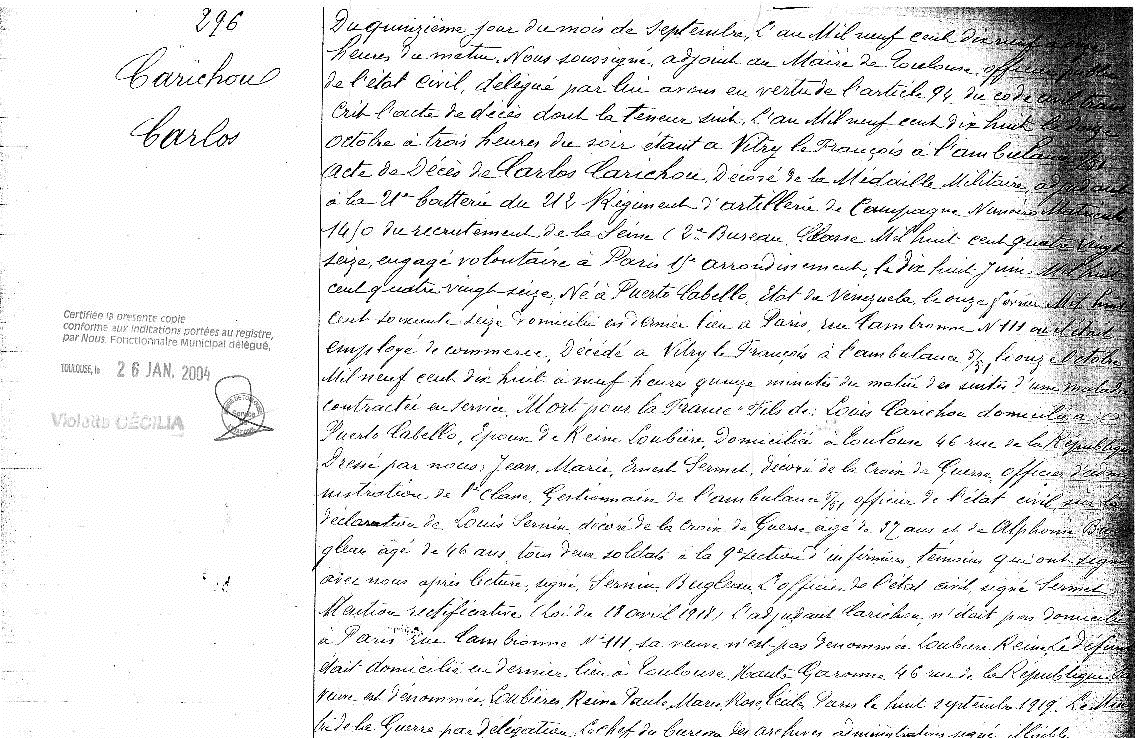 296
Carichou
Carlos
Certifiée la présente copie
conforme aux indications portées au registre,
par Nous, Fonctionnaire Municipal délégué,
TOULOUSE, le 26 JAN. 2004
Violette CÉCILIA
Du quinzième jour du mois de Septembre, L'an Mil neuf cent dix neuf
heures du matin. Nous soussigné, adjoint au Maire de Toulouse, officier public
de l'état civil, délégué par lui avons en vertu de l'article 94 du code civil trans
crit l'acte de décès dont la teneur suit. L'an Mil neuf cent dix huit le douze
Octobre à trois heures du soir étant à Vitry le François à l'ambulance 5/51
Acte de Décès de Carlos Carichou, Décoré de la Médaille Militaire, adjudant
à la 21e batterie du 212 Régiment d'artillerie de Campagne Numéro Matricule
1450 du recrutement de la Seine (2e Bureau, Classe Mil huit cent quatre vingt
seize, engagé volontaire à Paris arrondissement, le dix huit Juin Mil huit
cent quatre vingt seize, Né à Puerto Cabello, Etat de Venezuela, le onze février Mil huit
cent soixante seize domicilié en dernier lieu à Paris, rue Cambronne N° 111
employé de commerce, Décédé à Vitry le François à l'ambulance 5/51, le onze Octobre
Mil neuf cent dix huit à neuf heures quinze minutes du matin des suites d'une maladie
contractée en service, "Mort pour la France" Fils de: Louis Carichou domicilié à
Puerto Cabello, Epoux de Reine Loubière, Domiciliée à Toulouse 46 rue de la République
Dressé par nous, Jean, Marie, Ernest Sermet, décoré de la croix de Guerre, officier d'admi
nistration de 1re classe, Gestionnaire de l'ambulance 5/51 officier de l'état civil, sur la
déclaration de Louis Sernin décoré de la croix de Guerre agé de 37 ans et de Alphonse Bu
gleau agé de 46 ans, tous deux soldats à la 9e section d'infirmiers, témoins qui ont signé
avec nous après lecture, signé, Sernin, Bugleau. L'officier de l'état civil, signé Sermet
Mention rectificative (Loi du 18 avril 1918) L'adjudant Carichou, n'était pas domicilié
à Paris rue Cambronne N° 111 sa veuve n'est pas dénommée Loubière Reine. Le défunt
était domicilié en dernier lieu à Toulouse, Haute Garonne 46 rue de la République. Sa
veuve est dénommée, Loubières, Reine Paule Marie Rose Cécile. Paris le huit septembre 1919. Le Minis
tre de la Guerre par délégation, Le chef du bureau des archives administratives signé Illisible